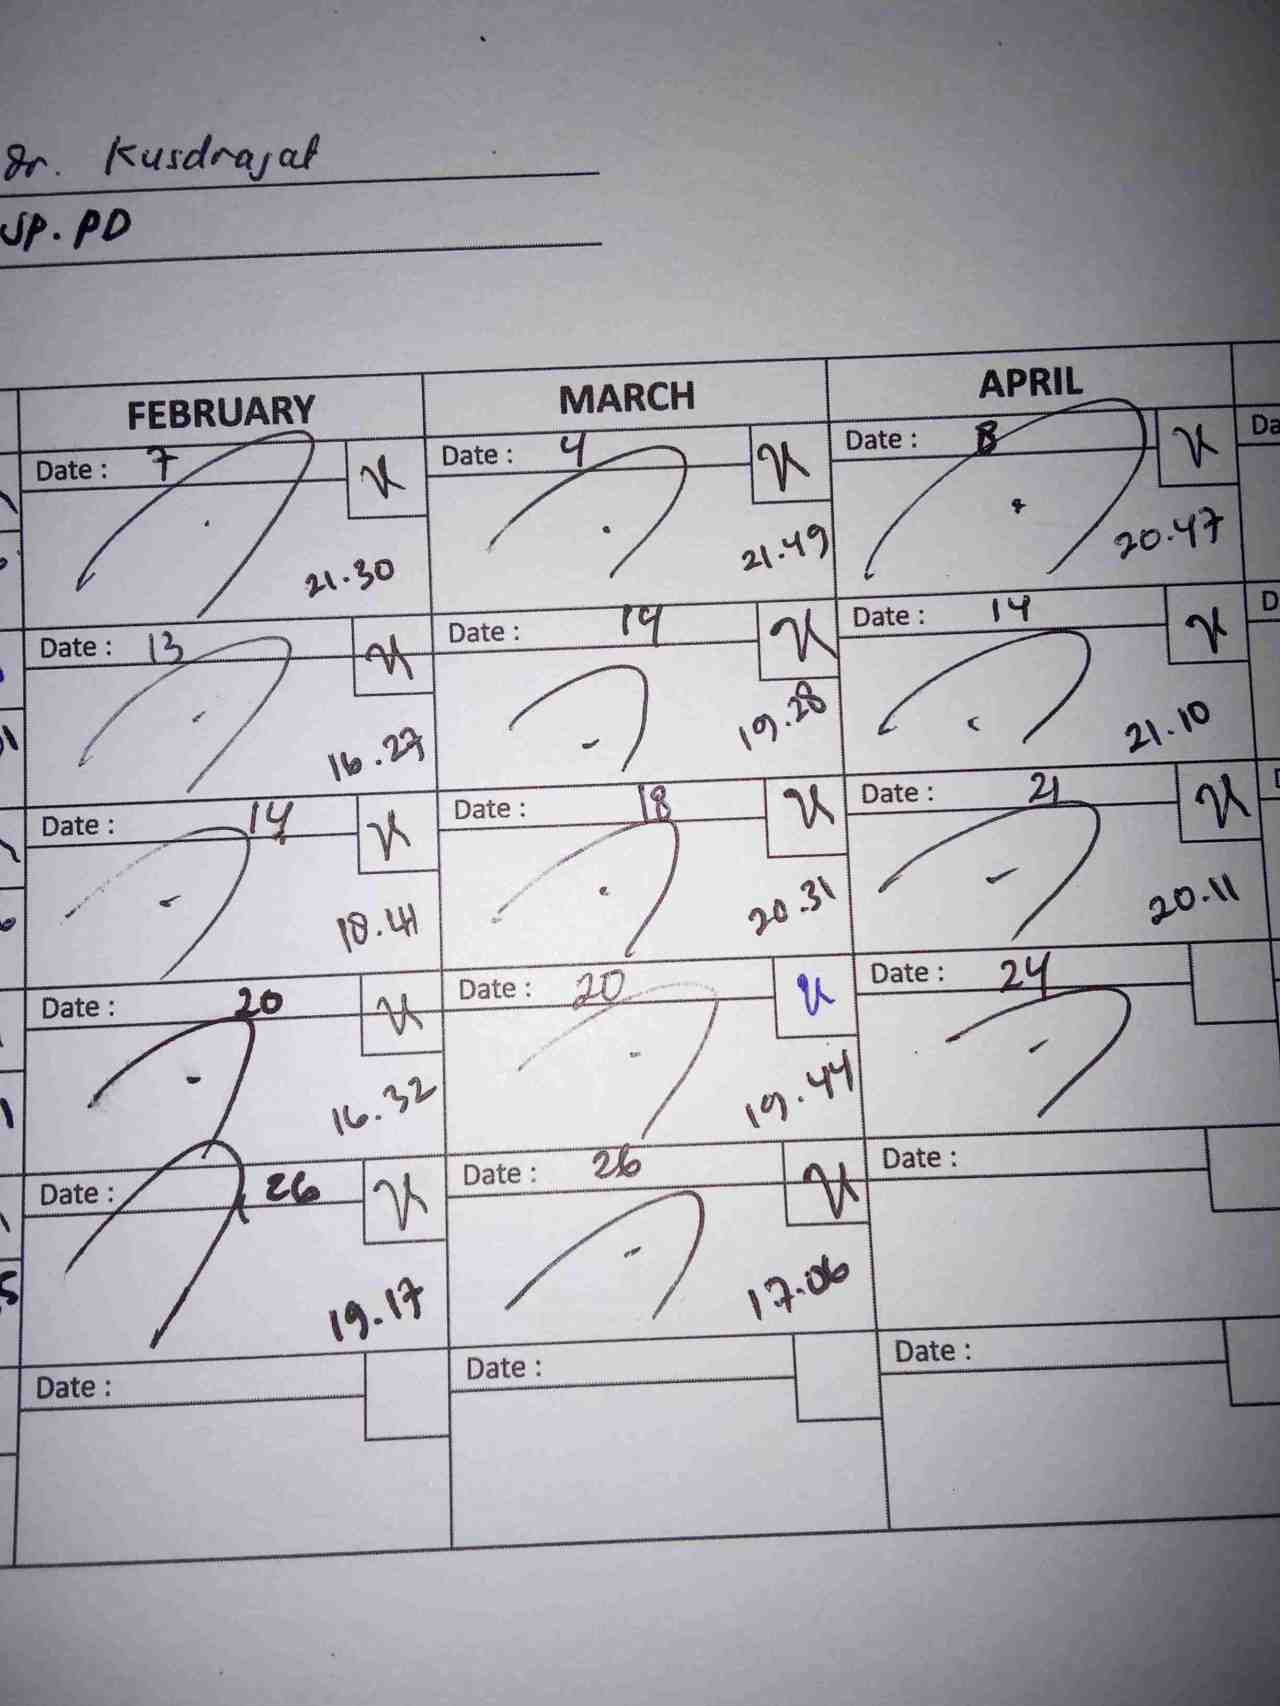 dr. Kusdrajat
SP.PD
FEBRUARY MARCH APRIL
Date : 7 Date : 4 Date : 8 Da
21.30 21.49 20.47
Date : 13 Date : 14 Date : 14 D
16.27 19.28 21.10
Date : 14 Date : 18 Date : 21
18.41 20.31 20.11
Date : 20 Date : 20 Date : 24
16.32 19.44
Date : 26 Date : 26 Date :
19.17 17.06
Date : Date : Date :